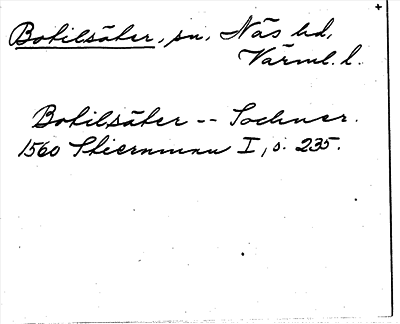 Botilsäter, sn, Näs hd,
Värml. l.
Botilsäter -- Sochner.
1560 Stiernman I, s. 235.